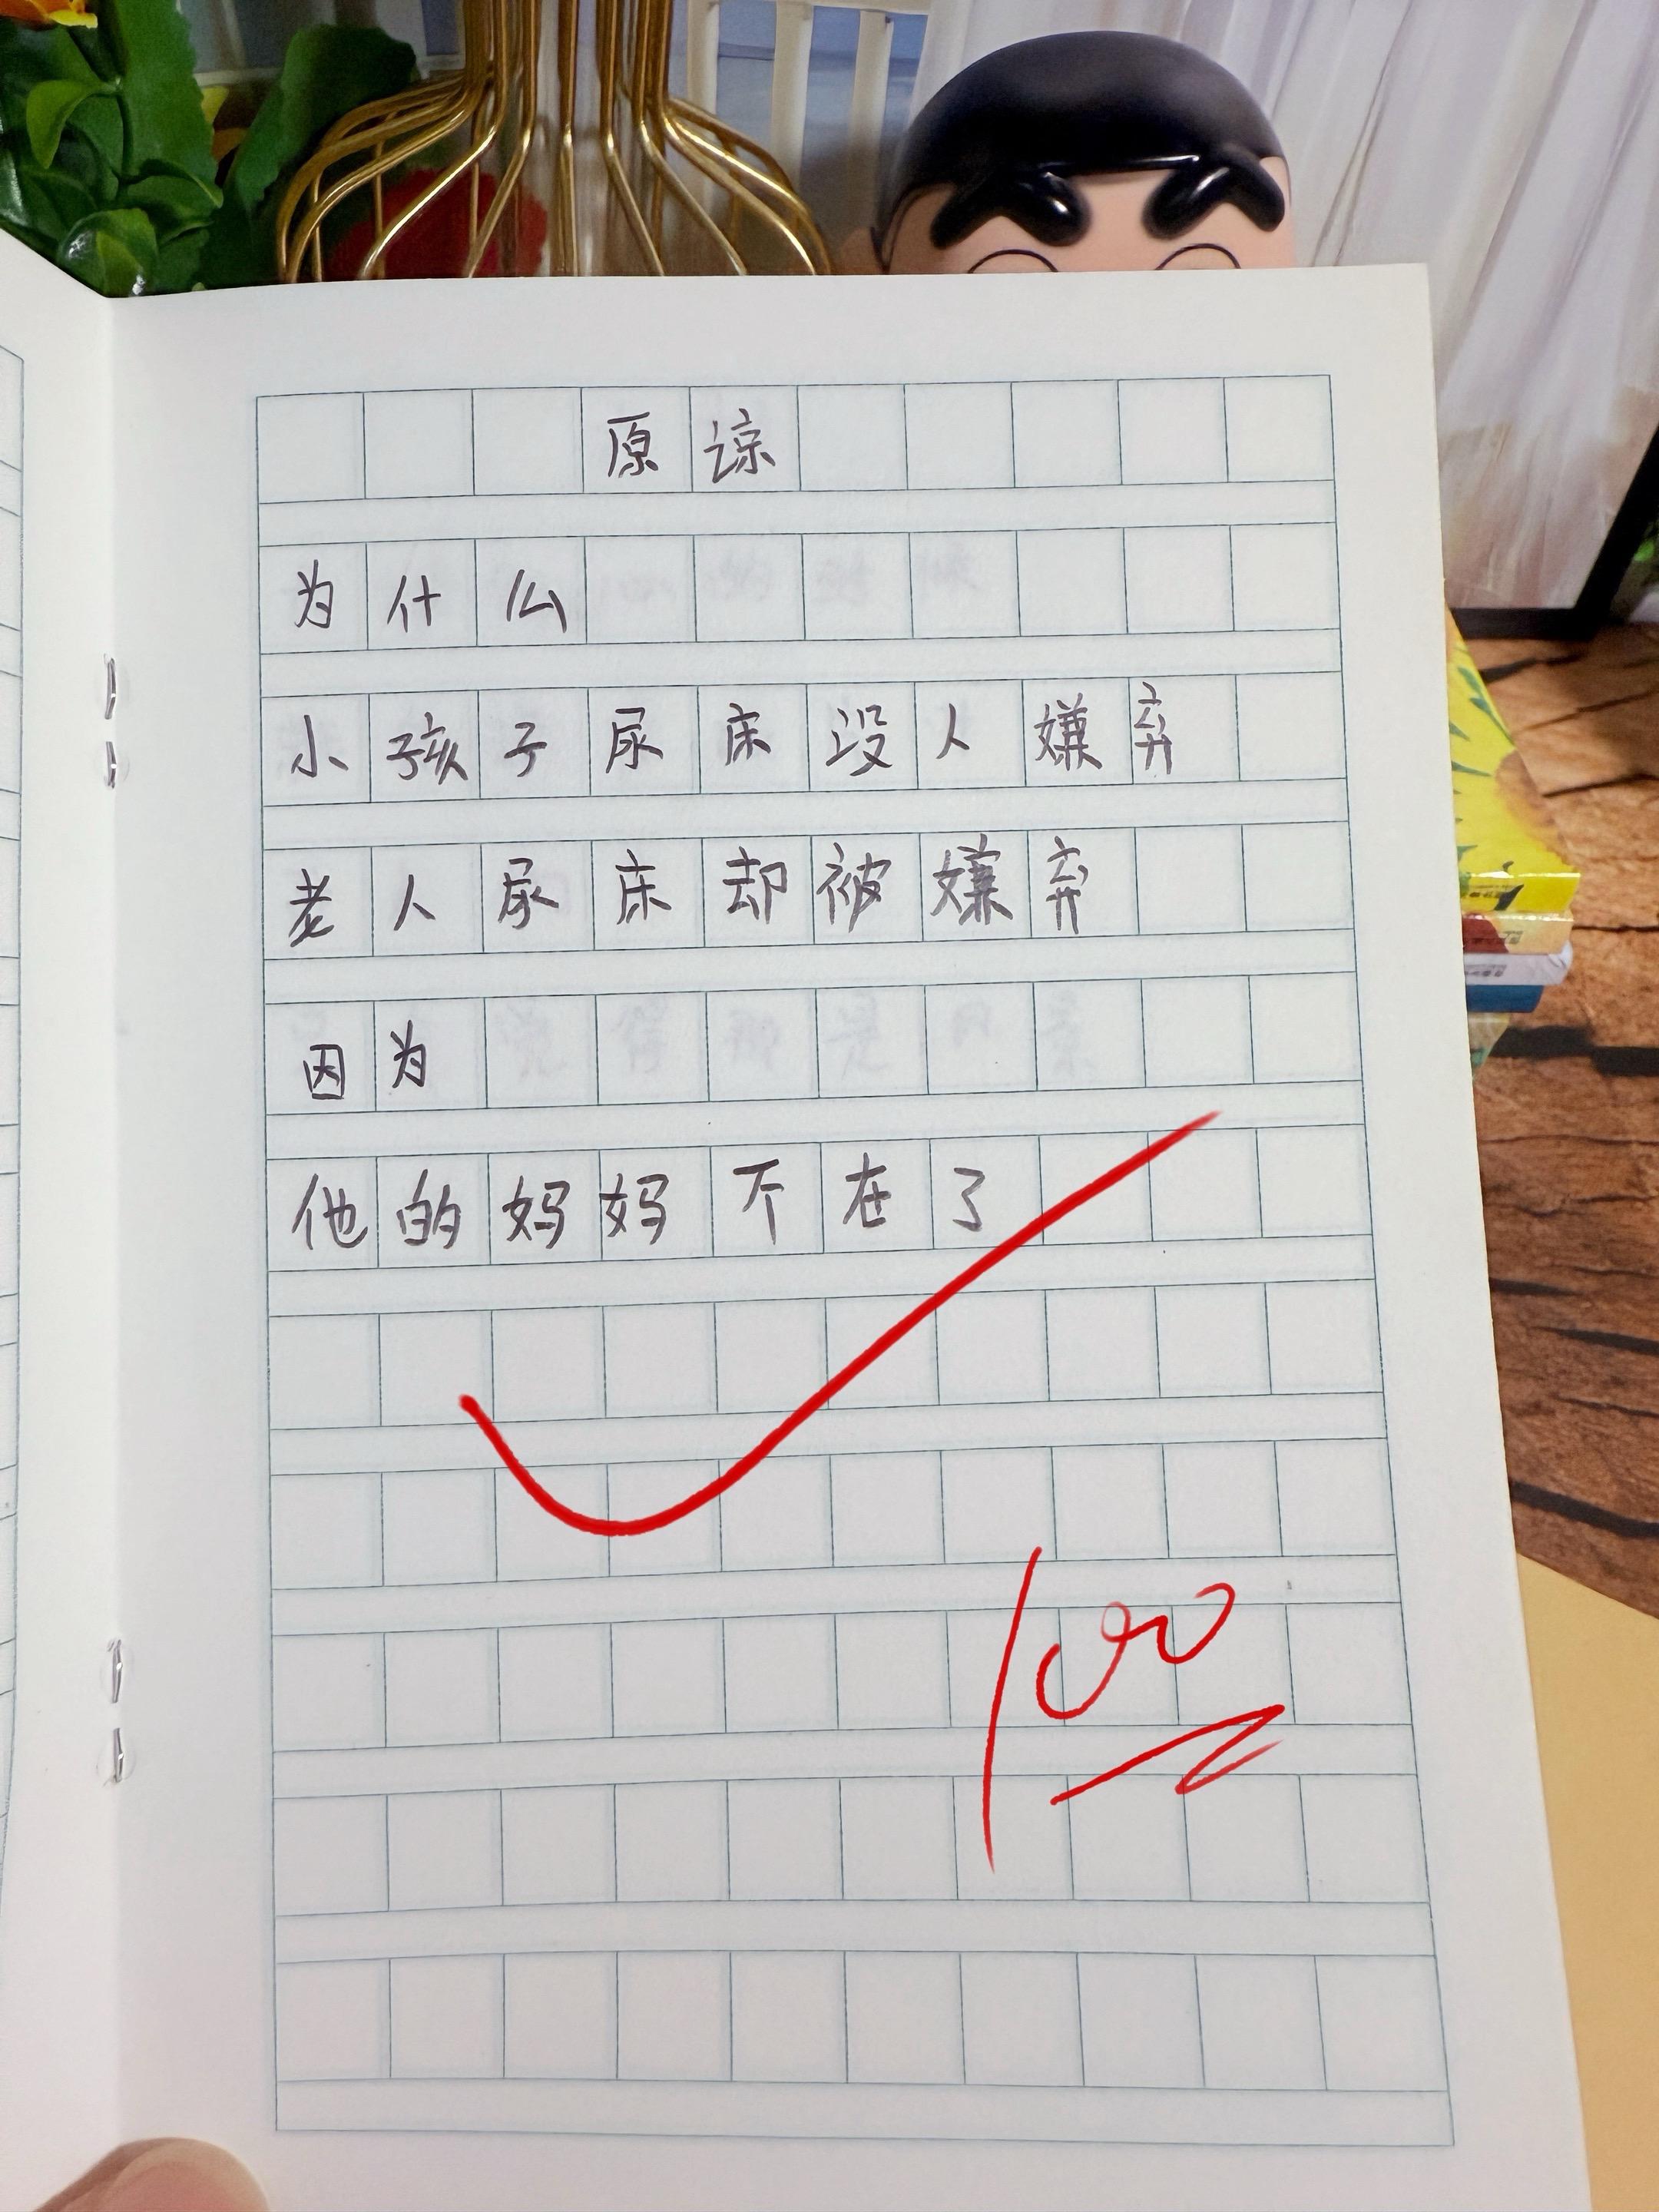 原谅
为什么
小孩子尿床没人嫌弃
老人尿床却被嫌弃
因为
他的妈妈不在了
100